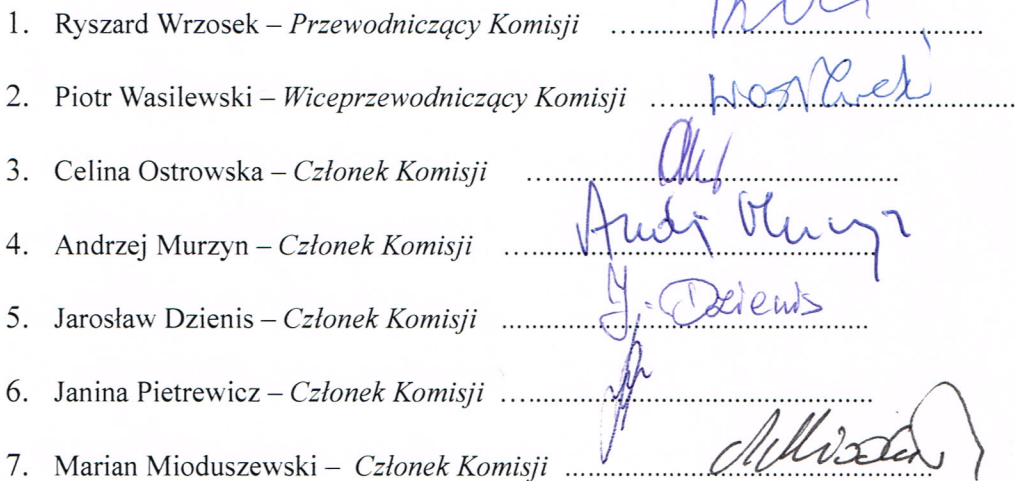 1. Ryszard Wrzosek – Przewodniczący Komisji ….......................................................
2. Piotr Wasilewski – Wiceprzewodniczący Komisji ….......................................................
3. Celina Ostrowska – Członek Komisji ….......................................................
4. Andrzej Murzyn – Członek Komisji ….......................................................
5. Jarosław Dzienis – Członek Komisji ....................................................... J. Dzienis
6. Janina Pietrewicz – Członek Komisji ….......................................................
7. Marian Mioduszewski – Członek Komisji .......................................................